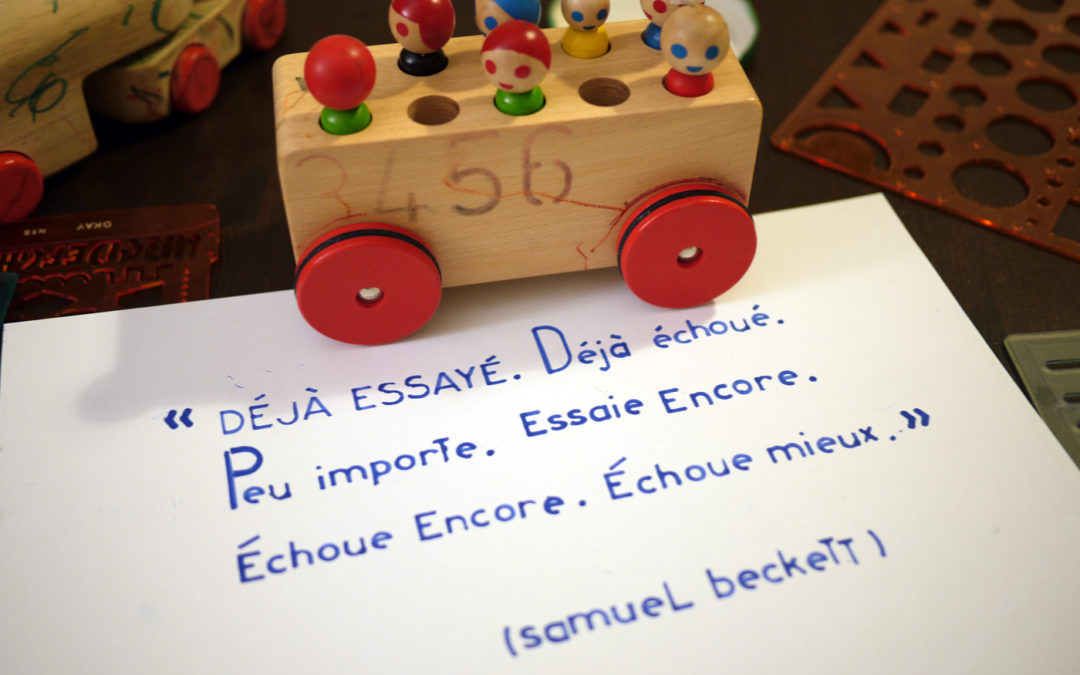 3456
OKAY
N°8
« DÉJÀ ESSAYÉ. Déjà échoué.
Peu importe. Essaie Encore.
Échoue Encore. Échoue mieux. »
(samueL beckeTT)